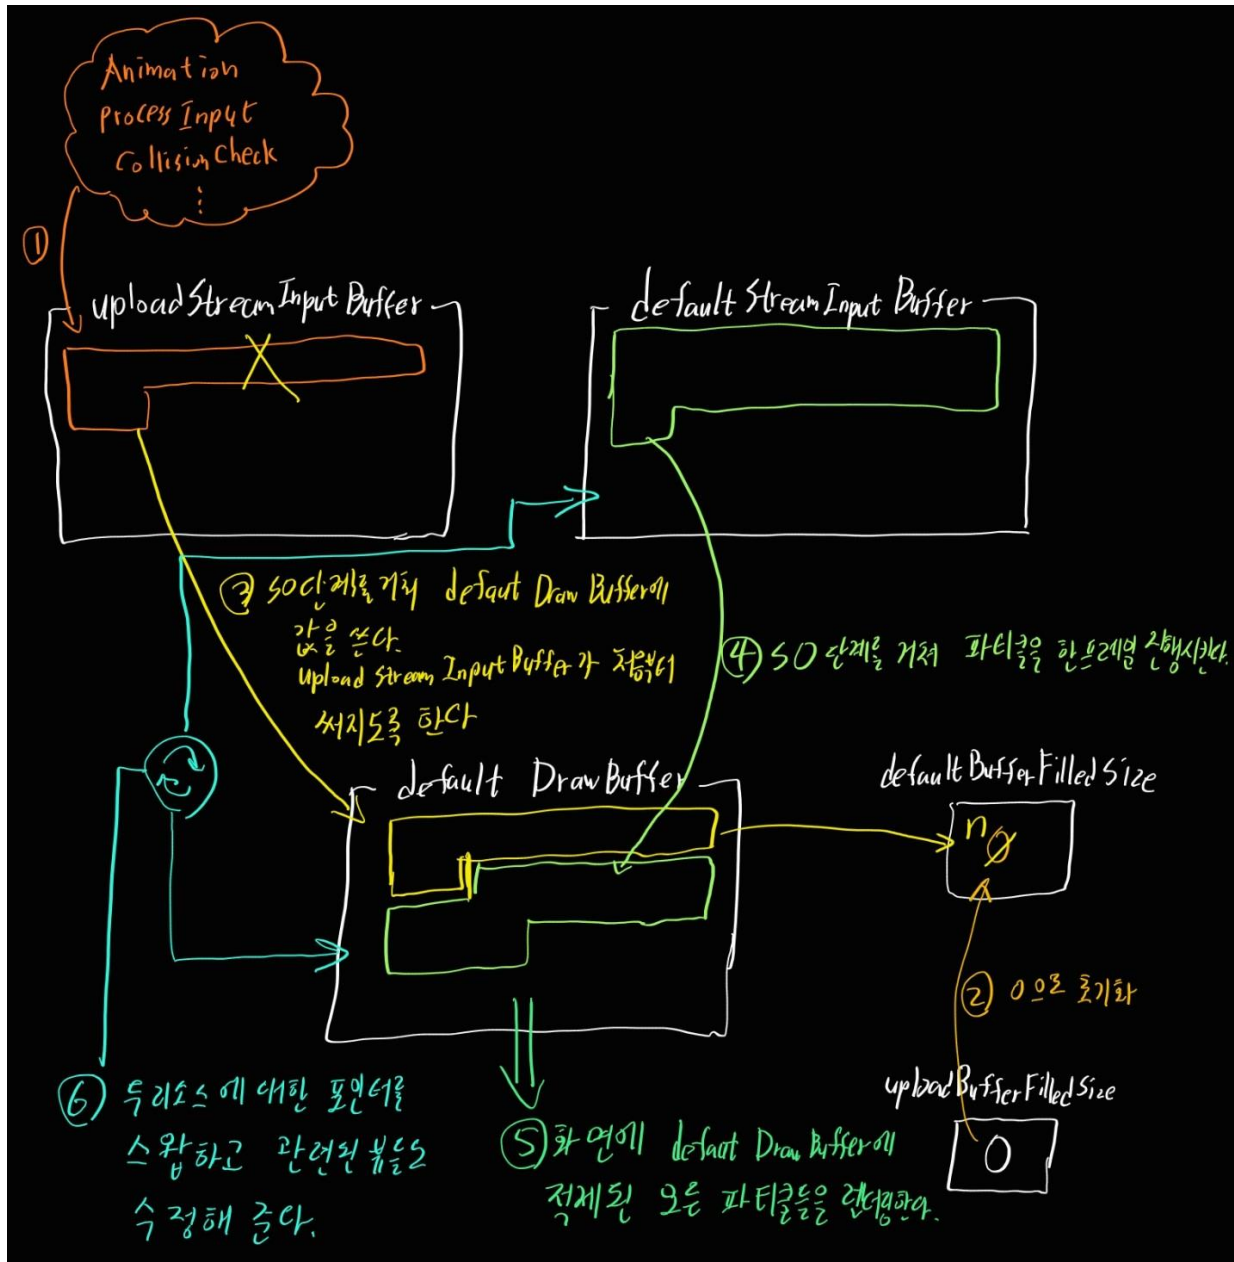 Animation
Process Input
Collision Check
⋮
①
upload Stream Input Buffer
default Stream Input Buffer
③ SO단계를 거쳐 defaut Draw Buffer에
값을 쓴다.
upload Stream Input Buffer가 처음부터
써지도록 한다
④ SO 단계를 거쳐 파티클을 한프레임 진행시킨다.
default DrawBuffer
defaultBufferFilledSize
n 0
② 0으로 초기화
uploadBufferFilledSize
0
⑤ 화면에 defaut Draw Buffer에
적제된 모든 파티클들을 렌더링한다.
⑥ 두 리소스에 대한 포인터를
스왑하고 관련된 뷰들도
수정해 준다.